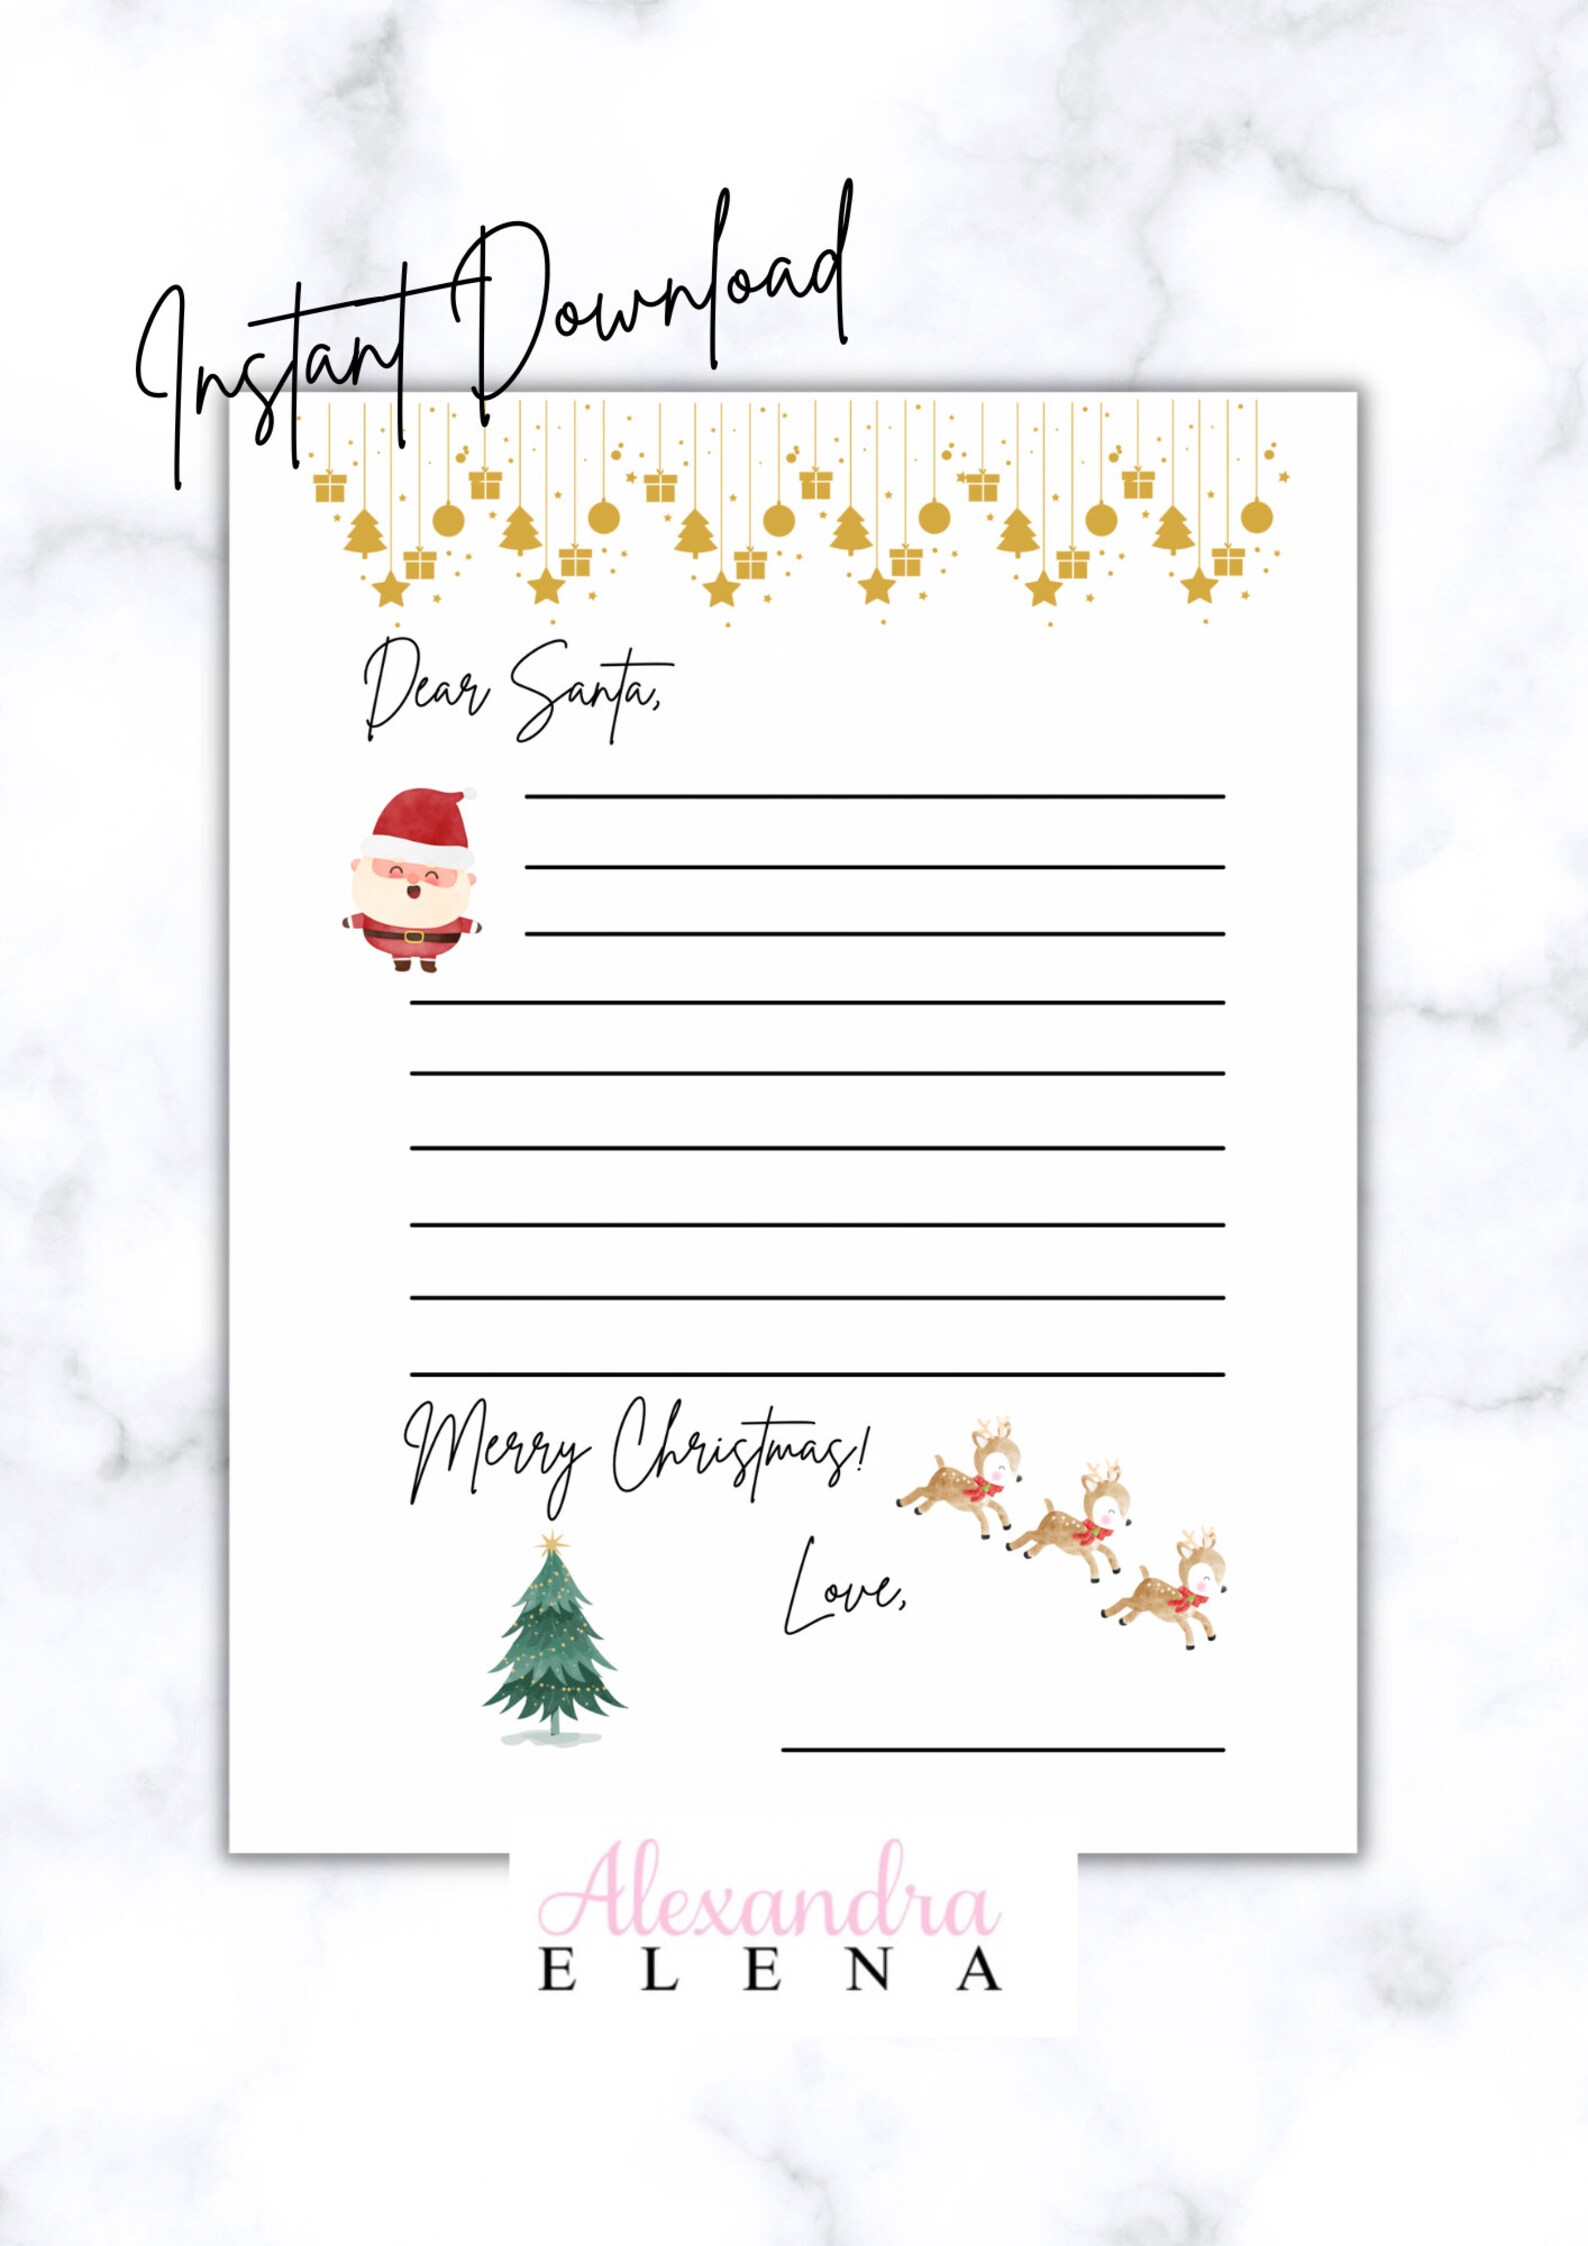 Instant Download
Dear Santa,
Merry Christmas!
Love,
Alexandra
ELENA